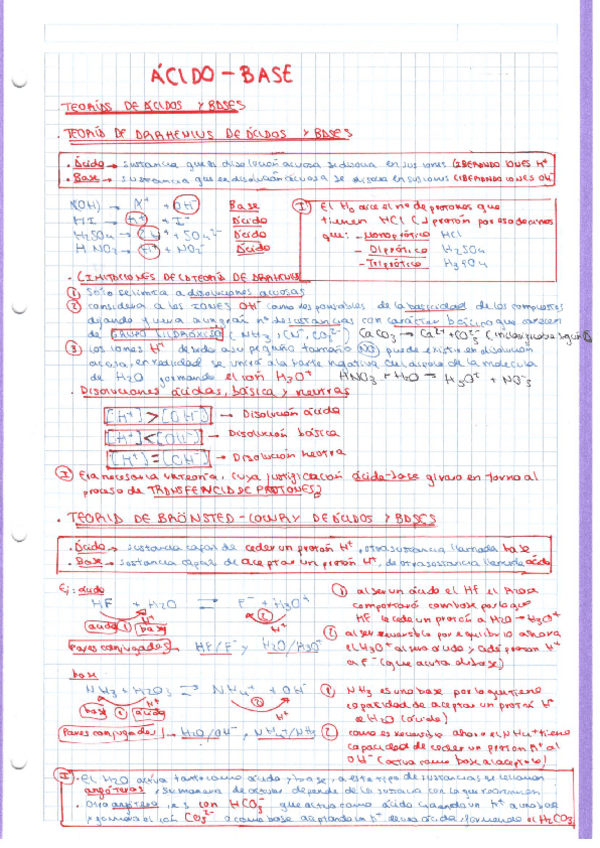 ÁCIDO - BASE
TEORÍAS DE ÁCIDOS Y BASES
. TEORÍA DE ARRHENIUS DE ÁCIDOS Y BASES
. Ácido → sustancia que en disolución acuosa se disocia en sus iones LIBERANDO IONES H⁺
. Base → sustancia que en disolución acuosa se disocia en sus iones LIBERANDO IONES OH⁻
KOH → K⁺ + OH⁻ Base
HI → H⁺ + I⁻ Ácido
H₂SO₄ → 2H⁺ + SO₄²⁻ Ácido
HNO₂ → H⁺ + NO₂⁻ Ácido
I El nº de protones que
tienen HCl 1 protón por eso decimos
que: - Monoprótico HCl
- Diprótico H₂SO₄
- Triprótico H₃PO₄
. LIMITACIONES DE LA TEORÍA DE ARRHENIUS
1 Sólo se limita a disoluciones acuosas
2 considera a los iones OH⁻ como responsables de la basicidad de los compuestos
dejando fuera a un gran nº de sustancias con carácter básico que carecen
de GRUPO HIDRÓXIDO (NH₃, CN⁻, CO₃²⁻) CaCO₃ → Ca²⁺ + CO₃²⁻
3 Los iones H⁺ debido a su pequeño tamaño NO puede existir en disolución
acuosa, en realidad se unirá a la parte negativa del dipolo de la molécula
de H₂O formando el ión H₃O⁺ HNO₃ + H₂O → H₃O⁺ + NO₃⁻
. Disoluciones ácidas, básica y neutras
[H⁺] > [OH⁻] → Disolución ácida
[H⁺] < [OH⁻] → Disolución básica
[H⁺] = [OH⁻] → Disolución neutra
I Era necesaria una teoría, cuya justificación ácido-base girara en torno al
proceso de TRANSFERENCIA DE PROTONES
. TEORÍA DE BRÖNSTED-LOWRY DE ÁCIDOS Y BASES
. Ácido → sustancia capaz de ceder un protón H⁺, a otra sustancia llamada base
. Base → sustancia capaz de aceptar un protón H⁺, de otra sustancia llamada ácido
Ej: ácido
HF + H₂O ⇌ F⁻ + H₃O⁺
ácido 1 base H⁺ 2 H⁺
Pares conjugados → HF/F⁻ y H₂O/H₃O⁺
1 al ser un ácido el HF el H₂O se
comportará como base por lo que
HF le cede un protón a H₂O → H₃O⁺
2 al ser reversible por equilibrio ahora
el H₃O⁺ al ser ácido cede protón H⁺
a F⁻ (que actúa de base)
base
NH₃ + H₂O ⇌ NH₄⁺ + OH⁻
base 1 ácido H⁺ 2 H⁺
Pares conjugados → H₂O/OH⁻, NH₄⁺/NH₃
1 NH₃ es una base por lo que tiene
capacidad de aceptar un protón H⁺
de H₂O (ácido)
2 como es reversible ahora el NH₄⁺ tiene
capacidad de ceder un protón H⁺ al
OH⁻ (actúa como base al aceptarlo)
I . El H₂O actúa tanto como ácido y base, a este tipo de sustancias se llaman
anfóteras, su manera de actuar depende de la sustancia con la que reaccionan
. Otro anfótero es ion HCO₃⁻ que actúa como ácido cuando un H⁺ a una base
y formará el ión CO₃²⁻ o como base aceptando un H⁺ de un ácido, formando el H₂CO₃